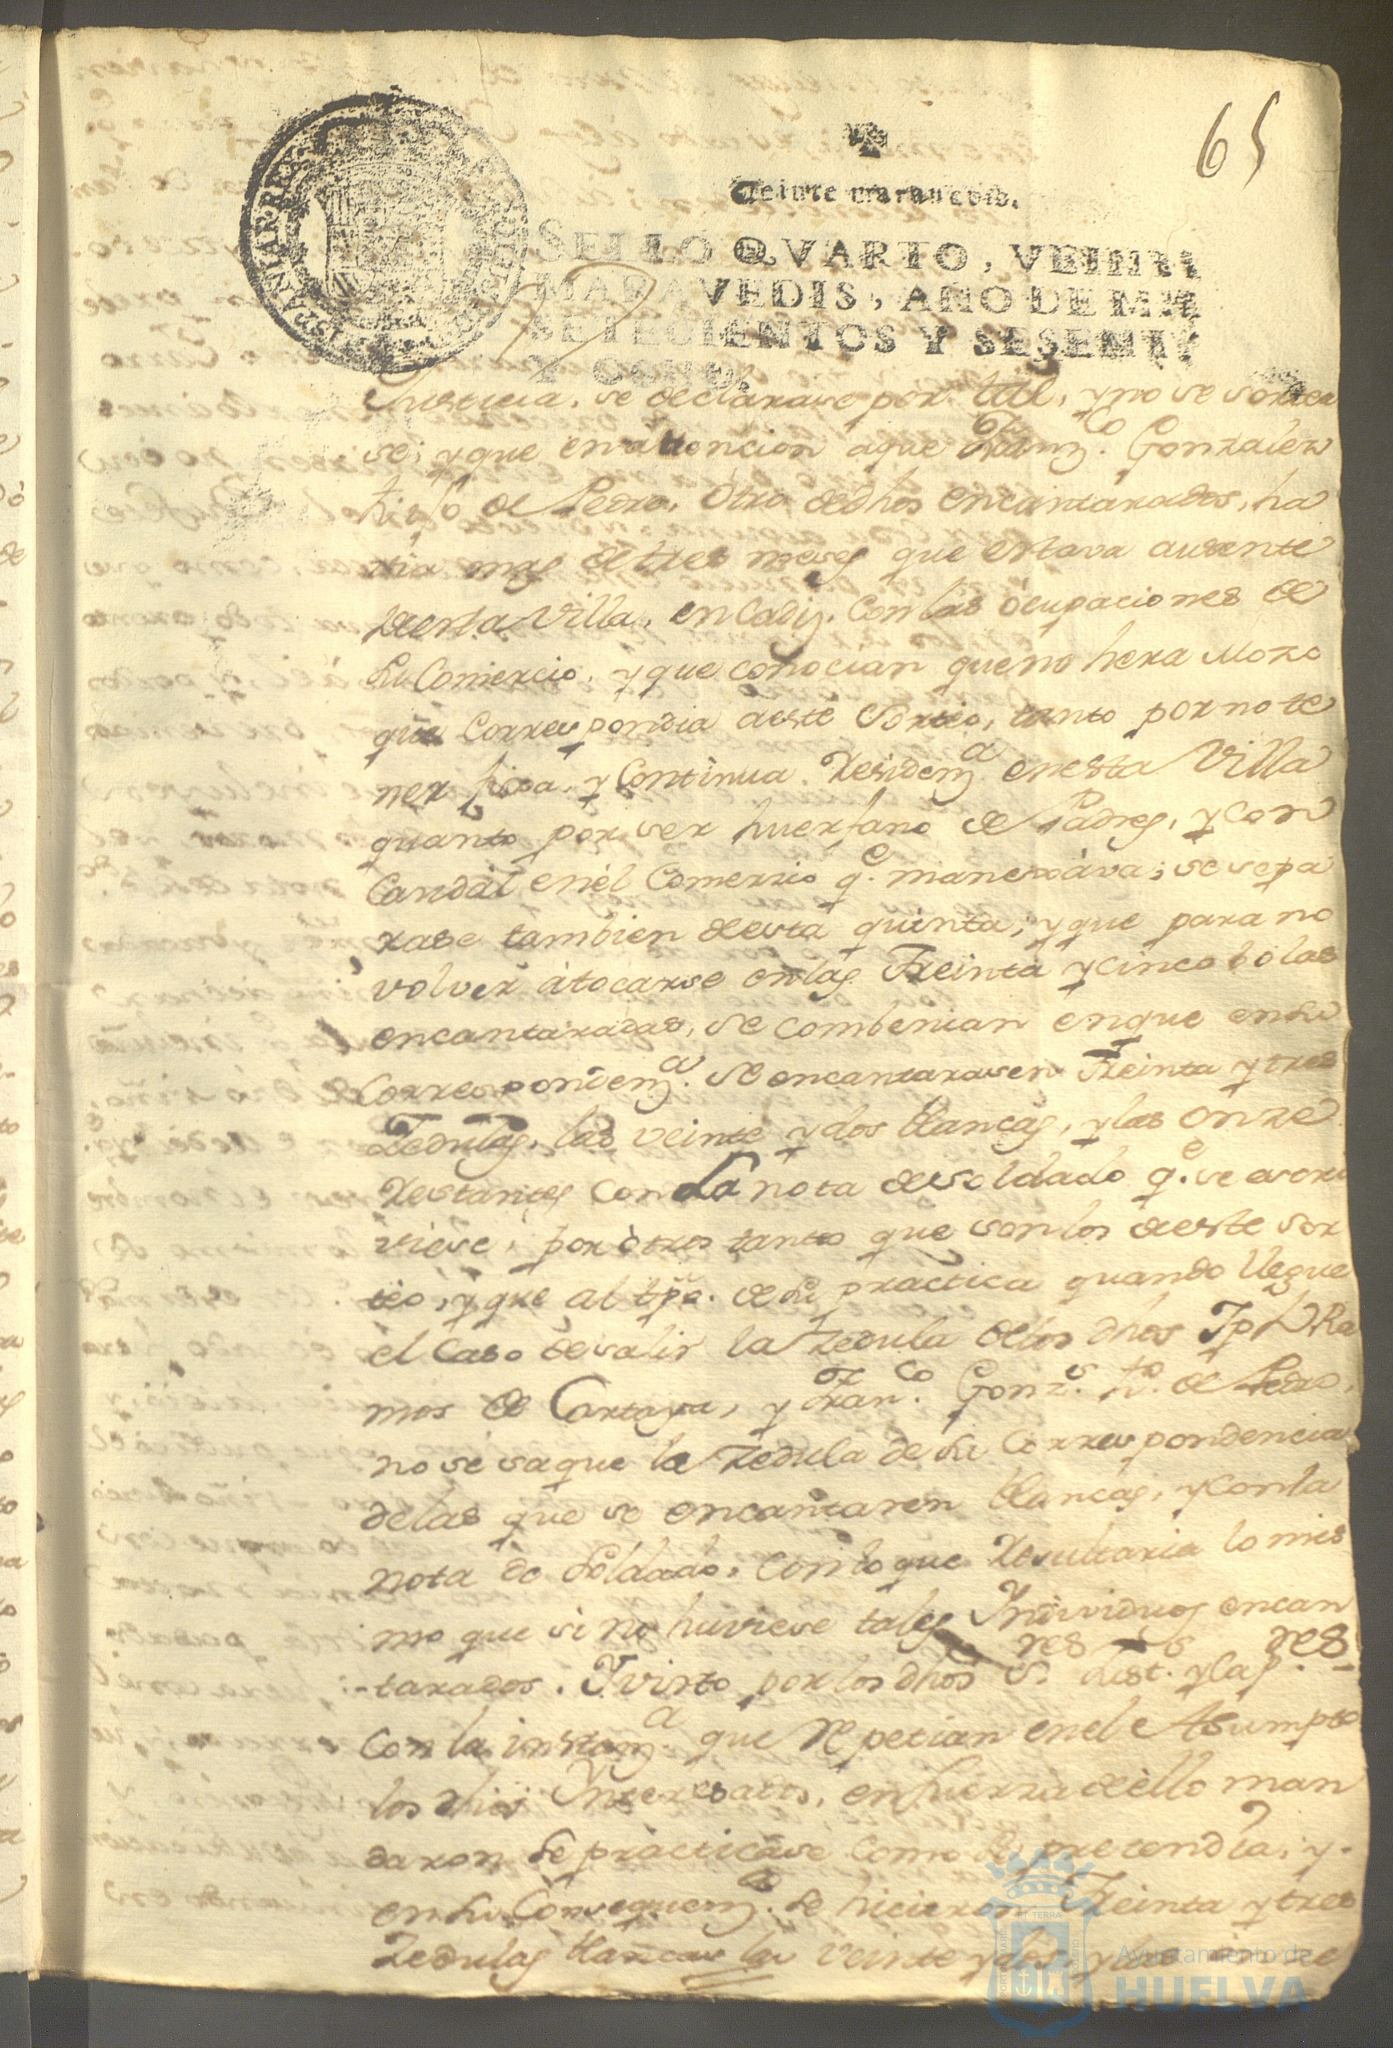 65
Veinte marauedis.
SELLO QVARTO, VEINTE
MARAVEDIS, AÑO DE MIL
SETECIENTOS Y SESENTA
Y OCHO.
Justicia, se declarase por tal, y no se sortea
se; y que en attencion a que Franzco. Gonzalez
hijo de Pedro, otro de dhos encantarados, ha
via mas de tres meses que estava ausente
desta Villa, en Cadiz. Con las òcupaciones de
su Comercio, y que conocian que no hera Mozo
que Correspondia a este Sorteo, tanto por no te
ner fixa, y Continua Residenza. en esta Villa
quanto por ser huerfano de Padres, y con
Caudàl en èl Comerzio qe. manexàva; se sepa
rase tambien de esta quinta; y que para no
volver à tocarse en las Treinta y cinco bolas
encantaradas, se combenian en que en su
Correspondenza. se encantarasen Treinta y tres
Zedulas, las veinte y dos blancas, y las onze
Restantes con La nota de soldado qe. se escri
viese, por òtros tantos que son los de este sor
tèo, y que al tpo. de su practica quando llegue
el caso de salir la Zedula de los dhos Jph Ra
mos de Cartaya, y Franco. Gonzs. ho. de Pedro,
no se saque la Zedula de su Correspondencia
de las que se encantaren blancas, y con la
nota de soldado, con lo que Resultaria lo mis
mo que si no huviese tales Yndividuos encan
tarados. Y visto por los dhos Sres. Just. y Cap.res
Con la instanza. que Repetian en el Asumpto
los dhos Ynteresados, en fuerza de èllo man
daron se practicase como se pretendía, y
en su Consequenza. se hicieron Treinta y tres
Zedulas blancas las veinte y dos, y las onze
Ayuntamiento de
HUELVA